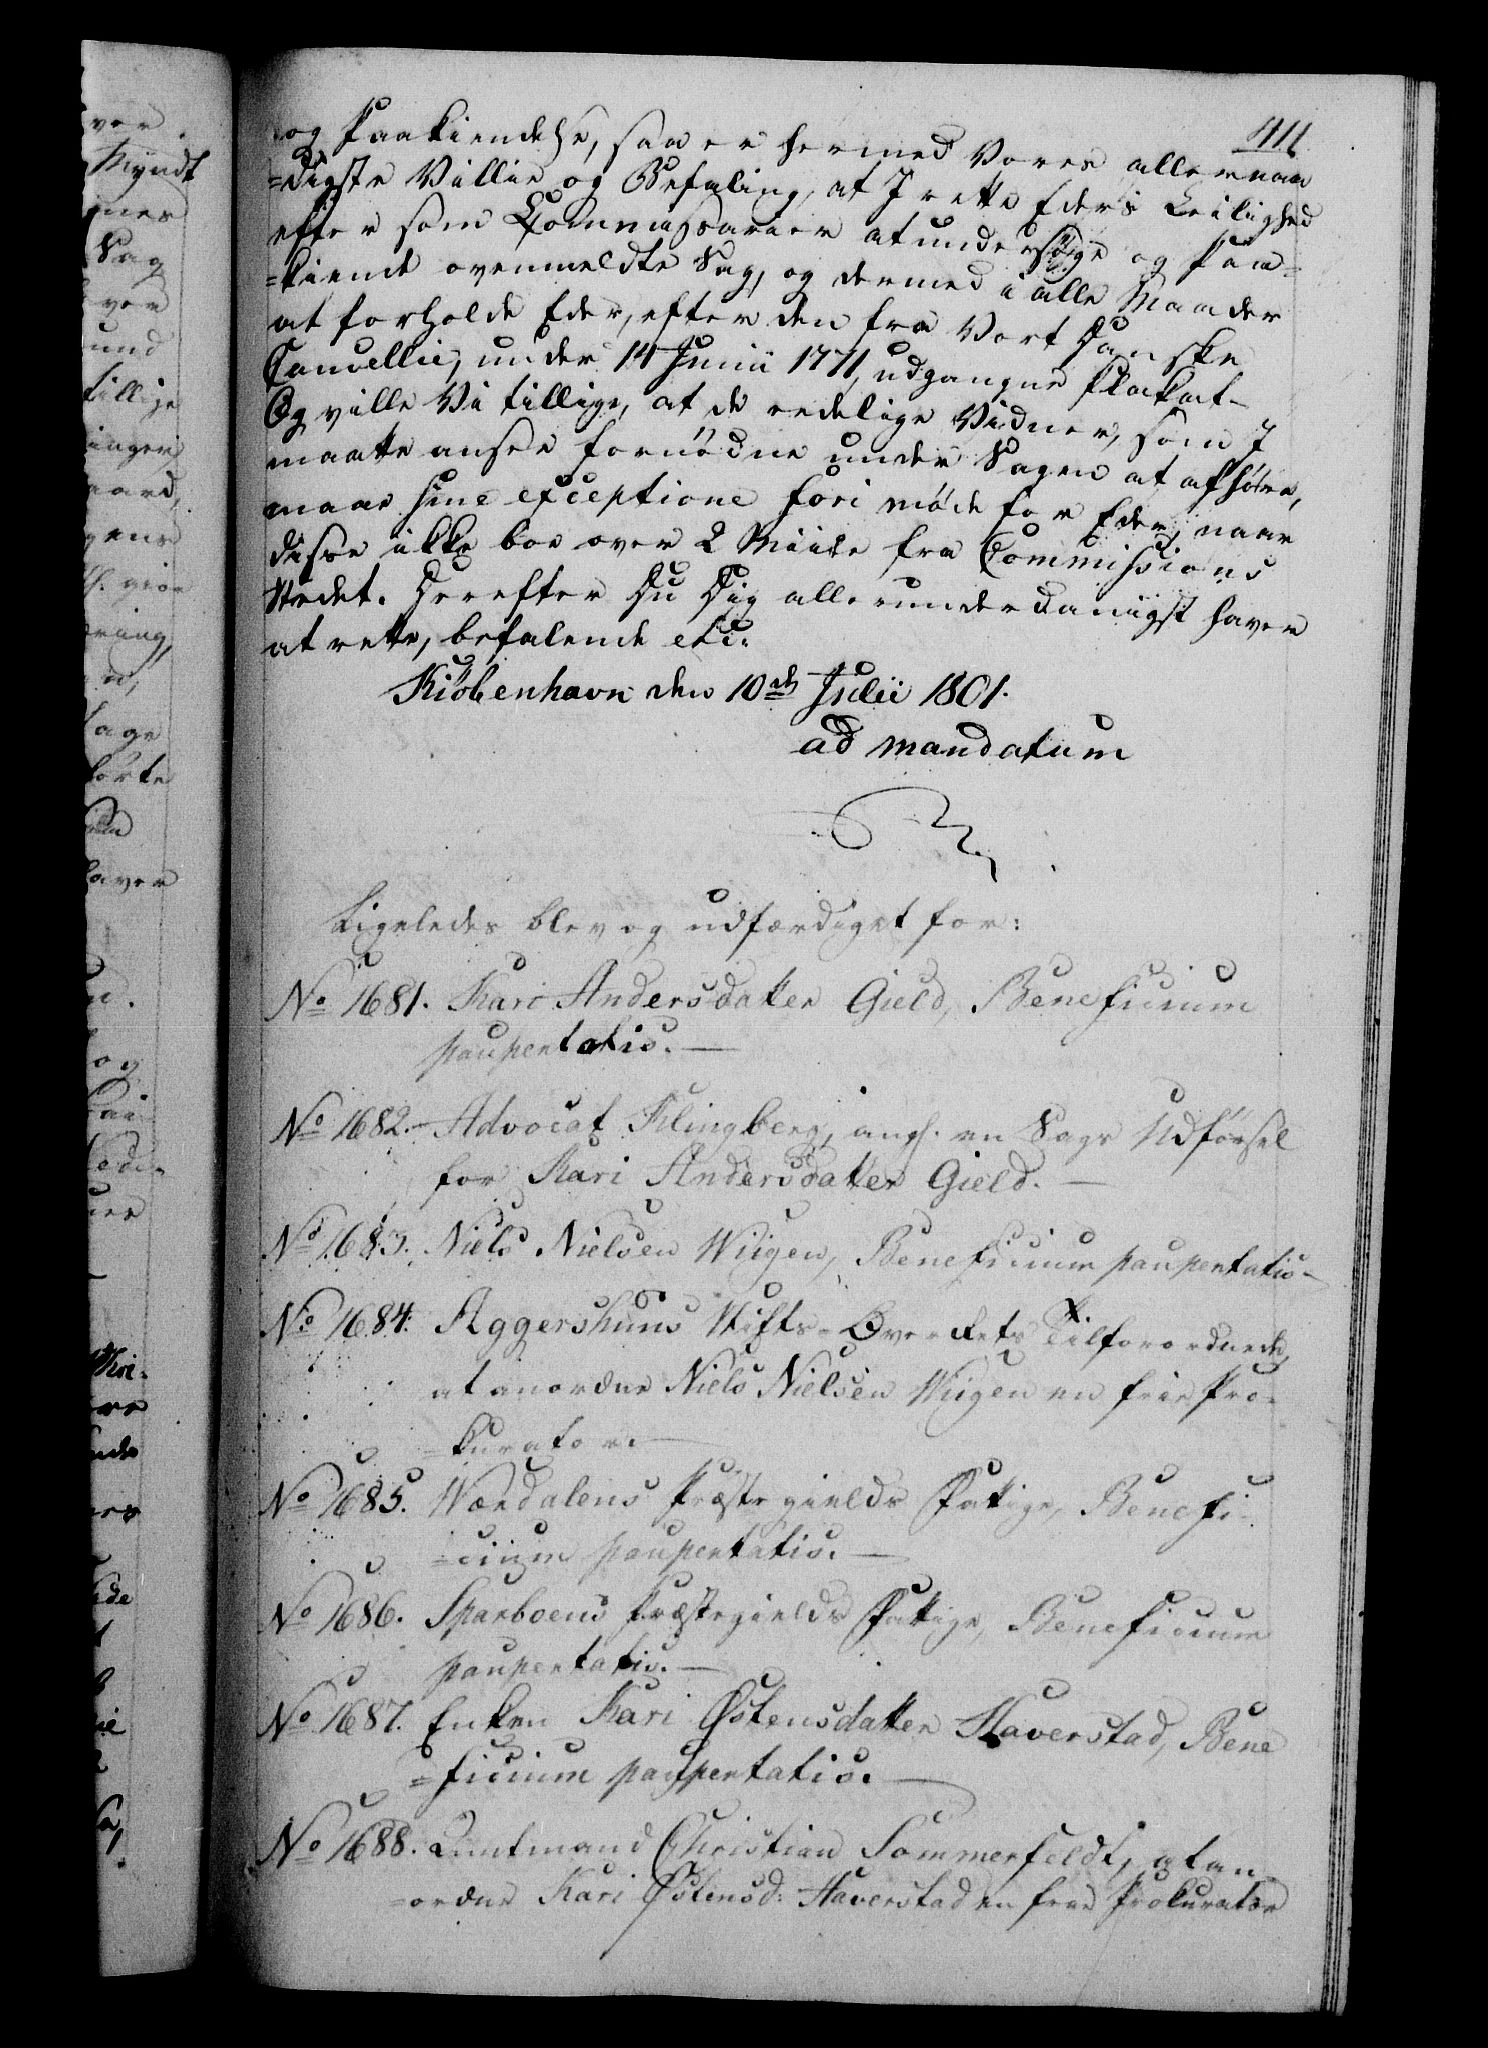 411
og Paakiendelse, saa er hermed Vores allernaa
=digste Villie og Befaling, at I rette Eders Leilighed
efter som Commissarier at undersøge og Paa=
=kiende ovenmeldte Sag, og dermed i alle Maader
at forholde Eder, efter den fra Vort Danske
Cancellie, under 14 Junii 1771, udgangne Plakat-
Og ville Vi tillige, at de redelige Vidner, som I
maatte ansee fornødne under Sagen at afhøre,
maae sine exceptione fori møde for Eder, naar
disse ikke boe over 2 Miile fra Commissions
Stedet. Derefter Du Dig allerunderdanigst haver
at rette, befalende etc:
Kiøbenhavn den 10de Julii 1801.
ad mandatum
Ligeledes blev og udfærdiget for:
No 1681. Kari Andersdatter Gield, Beneficium
paupertatis. —
No 1682. Advocat Klingberg, ang. en Sags Udførsel
for Kari Andersdatter Gield. —
No 1683. Niels Nielsen Wiigen, Beneficium paupertatis —
No 1684. Aggershuus Stifts-Overrets Tilforordnede,
at anordne Niels Nielsen Wiigen en frie Pro-
=kurator. —
No 1685. Wærdalens Præstegields Fattige, Benefi-
=cium paupertatis. —
No 1686. Sparboens Præstegields Fattige, Beneficium
paupertatis. —
No 1687. Enken Kari Østensdatter Haverstad, Bene
=ficium paupertatis. —
No 1688. Amtmand Christian Sommerfeldt, at an
=ordne Kari Østensd: Haverstad en frie Prokurator